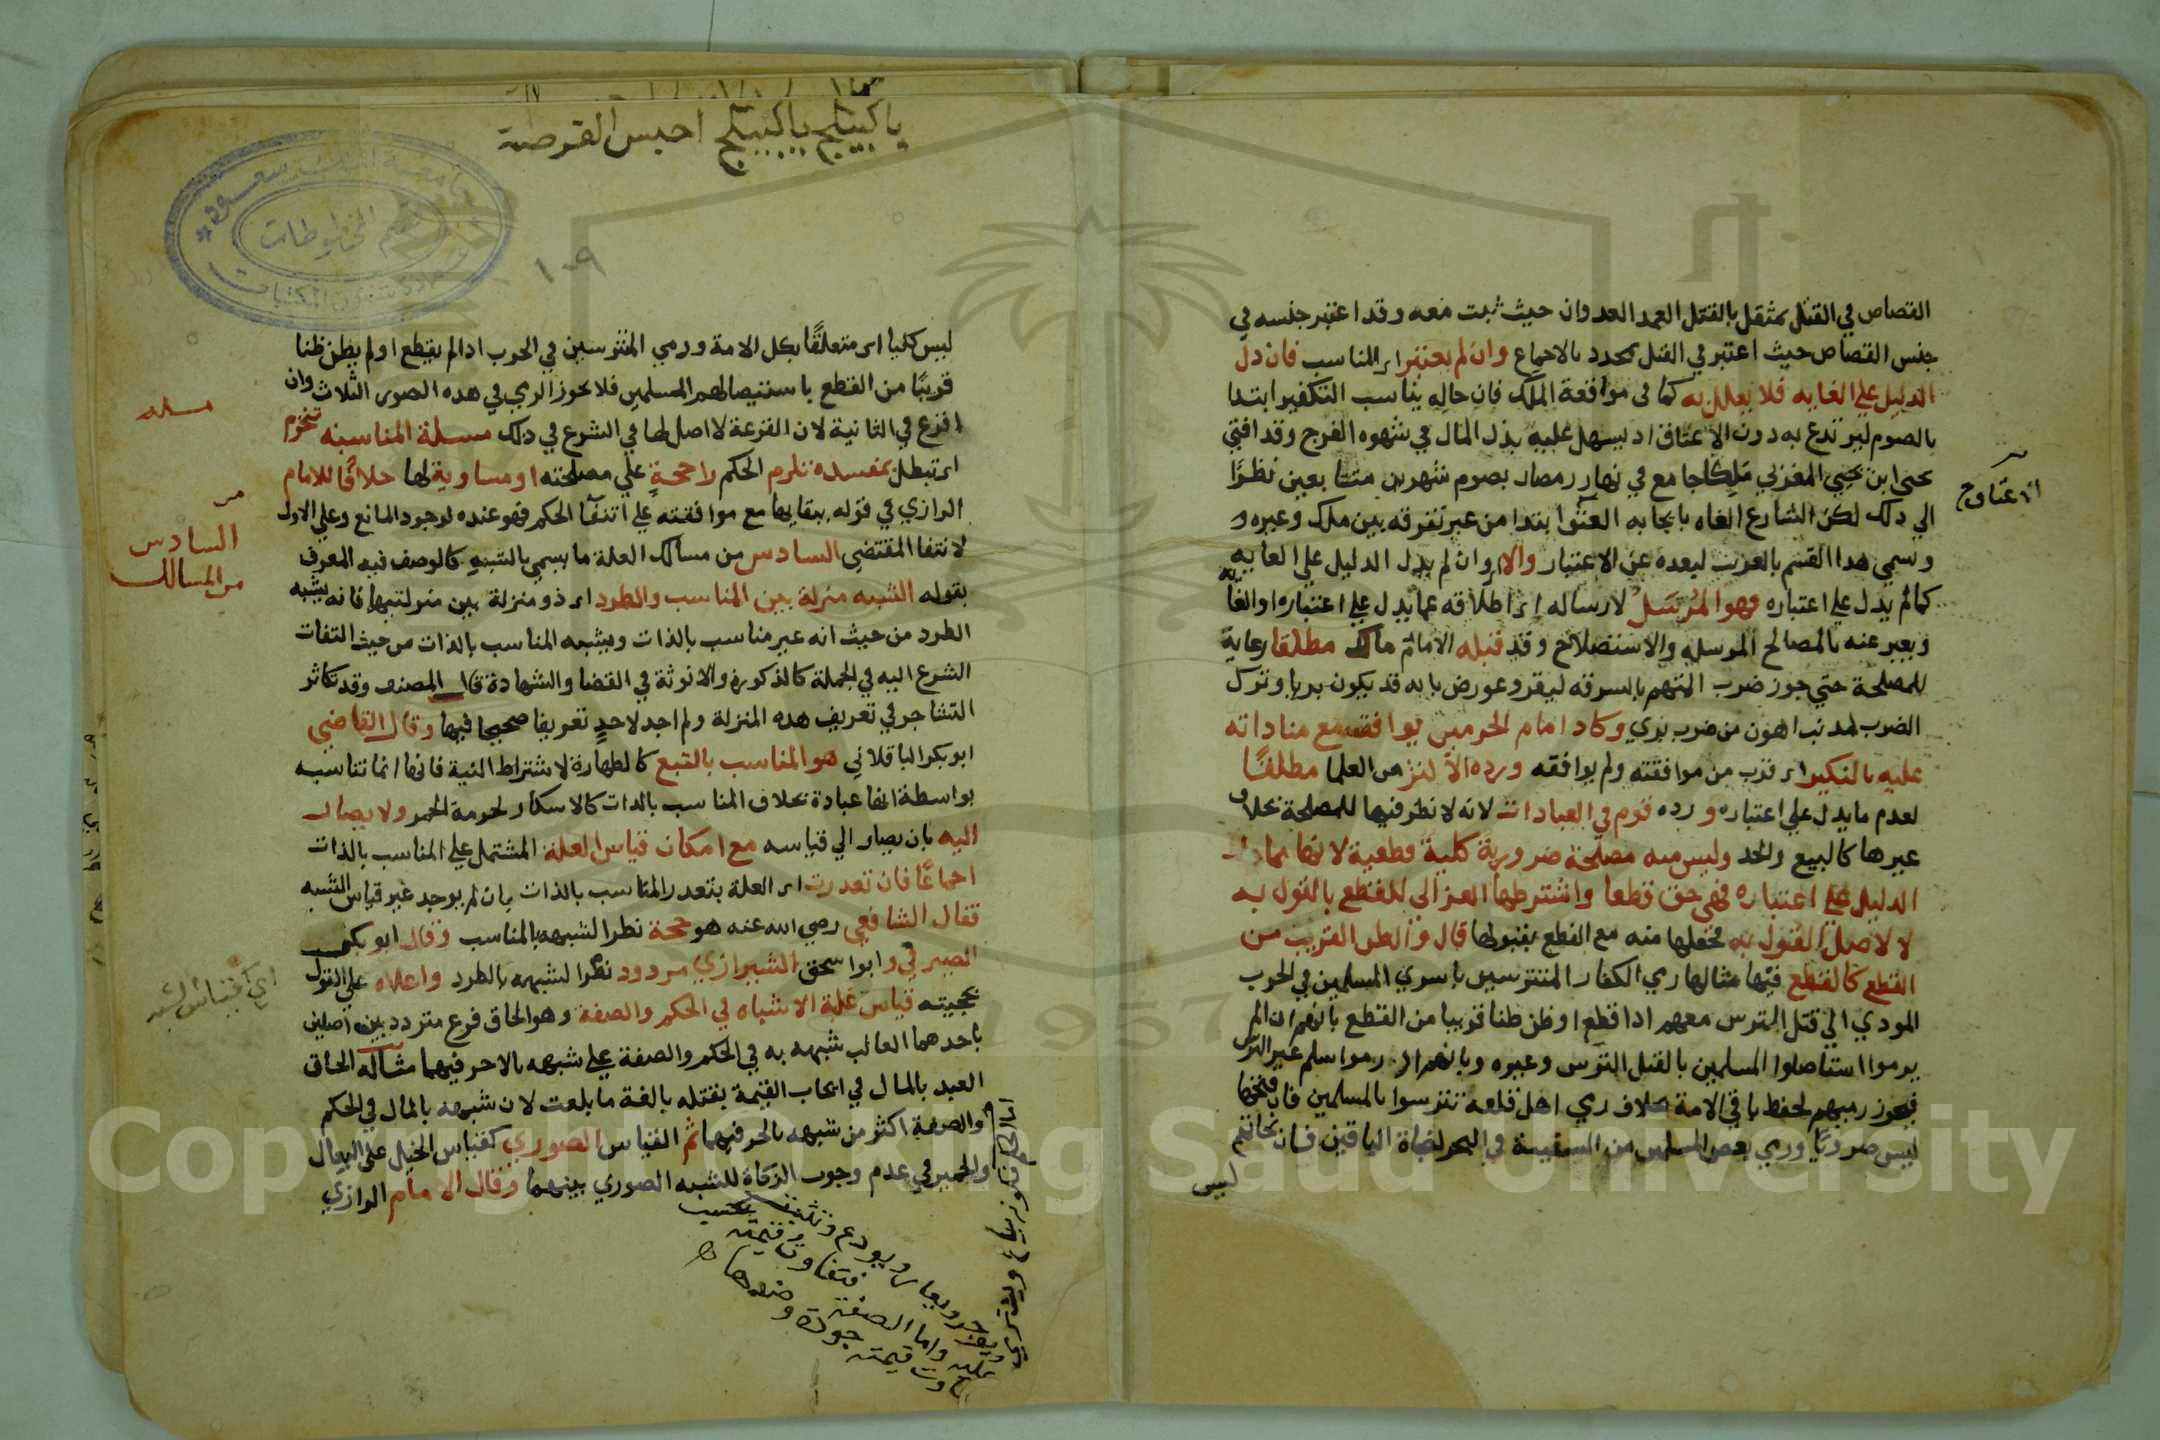 القصاص في القتل بمثقل بالقتل العمد العدوان حيث ثبت معه وقد اعتبر جنسه في
جنس القصاص حيث اعتبر في القتل بمحدد بالاجماع وان لم يعتبر اي المناسب فان دل
الدليل علي الغايه فلا يعلل به كما في مواقعة الملك فان حاله يناسب التكفير ابتدا
بالصوم ليرتدع به دون الاعتاق اذ يسهل عليه بذل المال في شهوه الفرج وقد افتي
يحيي ابن يحيي المغربي ملكا جامع في نهار رمضان بصوم شهرين متتابعين نظرًا
الي ذلك لكن الشارع الغاه بايجابه العتق ابتدا من غير تفرقه بين ملك وغيره و
وسمي هذا القسم بالغريب لبعده عن الاعتبار والا اي وان لم يدل الدليل علي الغايه
كما لم يدل علي اعتباره فهو المرسل لارساله اي اطلاقه عما يدل علي اعتباره او الغايه
ويعبر عنه بالمصالح المرسله والاستصلاح وقد قبله الامام مالك مطلقا رعاية
للمصلحة حتي جوز ضرب المتهم بالسرقه ليقر وعورض بانه قد يكون بريا وترك
الضرب لمذنب اهون من ضرب بري وكاد امام الحرمين يوافقه مع مناداته
عليه بالنكير اي قرب من موافقته ولم يوافقه ورده الاكثر من العلما مطلقًا
لعدم ما يدل علي اعتباره ورده قوم في العبادات لانه لا نظر فيها للمصلحة بخلاف
غيرها كالبيع والحد وليس منه مصلحة ضرورية كلية قطعية لانها مما دل
الدليل علي اعتباره فهي حق قطعا واشترطها الغزالي للقطع بالقول به
لا لاصل القول به فجعلها منه مع القطع بقبولها قال والظن القريب من
القطع كالقطع فيها مثالها رمي الكفار المتترسين باسري المسلمين في الحرب
المودي الي قتل الترس معهم اذا قطع او ظن ظنا قريبا من القطع بانهم ان لم
يرموا استاصلوا المسلمين بالقتل الترس وغيره وبانهم ان رموا سلم غير الترس
فيجوز رميهم لحفظ باقي الامة بخلاف رمي اهل قلعة تترسوا بالمسلمين فان فتحها
ليس ضروريًا ورمي بعض المسلمين من السفينة في البحر لنجاة الباقين فان نجاتهم
ليس
الاعتاق ح
ياكيبتلج ياكيبتلج احبس القرصة
١٠٩
جامعة الملك سعود
قسم المخطوطات
عمادة شئون المكتبات
ليس كليا اي متعلقًا بكل الامة ورمي المتترسين في الحرب اذا لم يقطع او لم يظن ظنا
قريبًا من القطع باستيصالهم المسلمين فلا يجوز الرمي في هذه الصور الثلاث وان
اقرع في الثانية لان القرعة لا اصل لها في الشرع في ذلك مسلة المناسبه تنخرم
اي تبطل بمفسده تلزم الحكم راجحةٍ علي مصلحته او مساوية لها خلافًا للامام
الرازي في قوله ببقايها مع موافقته علي انتفآ الحكم فهو عنده لوجود المانع وعلي الاول
لانتفا المقتضي السادس من مسالك العلة ما يسمي بالشبه كالوصف فيه المعرف
بقوله الشبه منزلة بين المناسب والطرد اي ذو منزلة بين منزلتيهما فانه يشبه
الطرد من حيث انه غير مناسب بالذات ويشبه المناسب بالذات من حيث التفات
الشرع اليه في الجملة كالذكورة والانوثة في القضا والشهادة قال المصنف وقد تكاثر
التشاجر في تعريف هذه المنزلة ولم اجد لاحدٍ تعريفا صحيحا فيها وقال القاضي
ابو بكر الباقلاني هو المناسب بالتبع كالطهارة لاشتراط النية فانها انما تناسبه
بواسطة انها عبادة بخلاف المناسب بالذات كالاسكار لحرمة الخمر ولا يصار
اليه بان يصار الي قياسه مع امكان قياس العلة المشتمل علي المناسب بالذات
اجماعًا فان تعذرت اي العلة بتعذر المناسب بالذات بان لم يوجد غير قياس الشبه
فقال الشافعي رضي الله عنه هو حجة نظرا لشبهه بالمناسب وقال ابو بكر
الصيرفي وابو اسحق الشيرازي مردود نظرًا لشبهه بالطرد واعلاه علي القول
بحجيته قياس غلبة الاشباه في الحكم والصفة وهو الحاق فرع متردد بين اصلين
باحدهما الغالب شبهه به في الحكم والصفة علي شبهه بالاخر فيهما مثاله الحاق
العبد بالمال في ايجاب القيمة بقتله بالغة ما بلغت لان شبهه بالمال في الحكم
والصفة اكثر من شبهه بالحر فيهما ثم القياس الصوري كقياس الخيل علي البغال
والحمير في عدم وجوب الزكاة للشبه الصوري بينهما وقال الامام الرازي
مسله
السادس
من المسالك
اي قياس الشبه
اما الحكم فكونه يباع ويشتري
ويوجر ويعار ويودع وتثبت
عليه اليد واما الصفة فتفاوت قيمته بحسب
تفاوت قيمته جودة وضدها
Copyright © King Saud University
1957